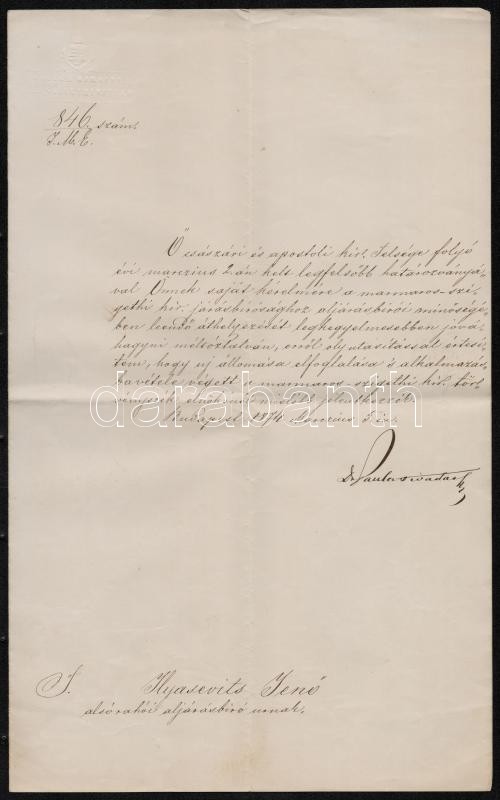 846. szám.
I. M. E.
Ő császári és apostoli kir. Felsége folyó
évi marczius 2-án kelt legfelsőbb határozványá-
val Önnek saját kérelmére a marmaros-szi-
gethi kir. járásbirósághoz aljárásbirói minőségé-
ben leendő áthelyezését leghegyelmesebben jóvá-
hagyni méltóztatván, erről oly utasitással értesi-
tem, hogy uj állomása elfoglalása s alkalmazás-
bavétele végett a marmaros-szigethi kir. tör-
vényszék elnökénél mielőbb jelentkezzék.
Budapest 1874 Marczius 5-én.
Dr Pauler Tivadar
darabanth
I. Ilyasevits Jenő
alsórahói aljárásbiró urnak.